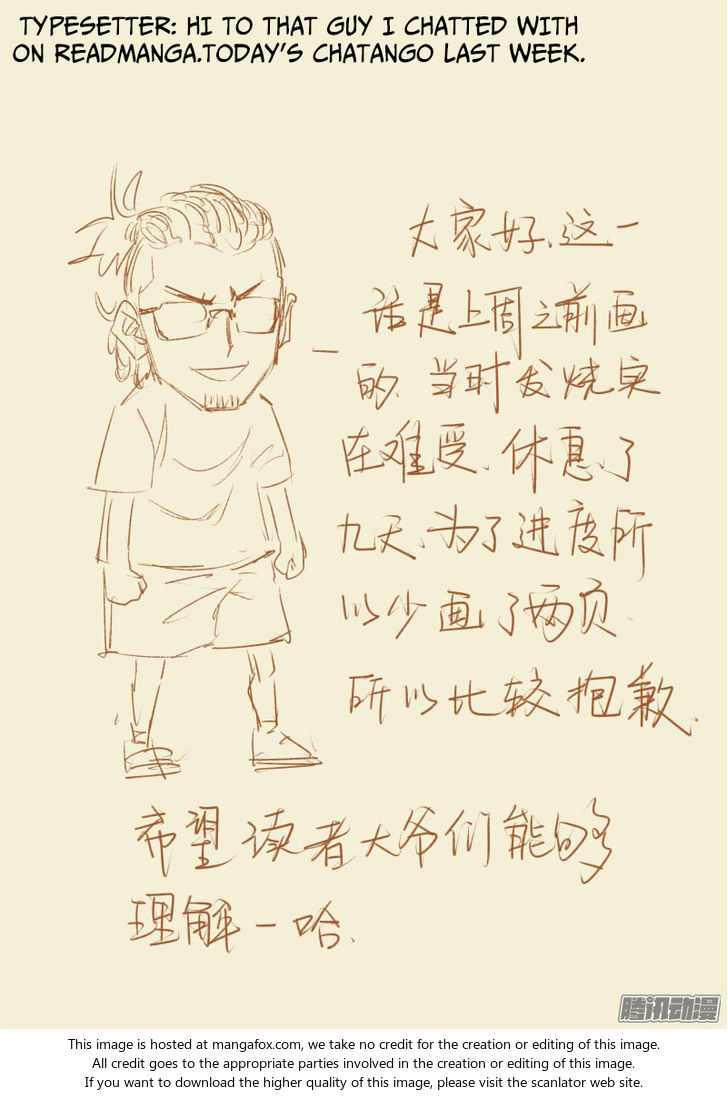 TYPESETTER: HI TO THAT GUY I CHATTED WITH
ON READMANGA.TODAY'S CHATANGO LAST WEEK.
大家好、这一
话是上周之前画
的、当时发烧实
在难受、休息了
九天、为了进度所
以少画了两页、
所以比较抱歉、
希望读者大爷们能够
理解一哈、
腾讯动漫
This image is hosted at mangafox.com, we take no credit for the creation or editing of this image.
All credit goes to the appropriate parties involved in the creation or editing of this image.
If you want to download the higher quality of this image, please visit the scanlator web site.